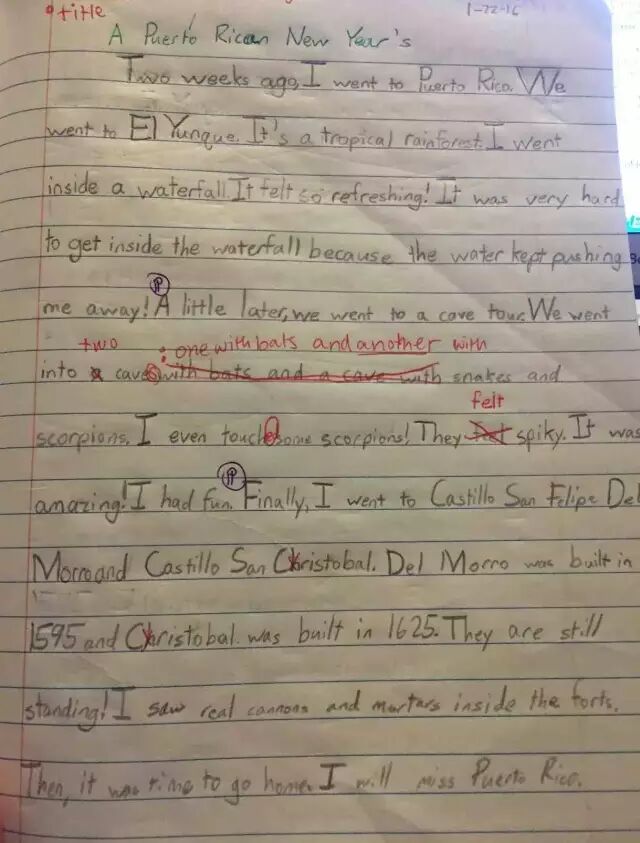 title
1-22-16
A Puerto Rican New Year's
Two weeks ago, I went to Puerto Rico. We
went to El Yunque. It's a tropical rainforest. I went
inside a waterfall. It felt so refreshing! It was very hard
to get inside the waterfall because the water kept pushing
me away! Ⓟ A little later, we went to a cave tour. We went
two : one with bats and another with
into a caves with bats and a cave with snakes and
felt
scorpions. I even touched some scorpions! They spiky. It was
amazing! I had fun. Ⓟ Finally, I went to Castillo San Felipe Del
Morro and Castillo San Christobal. Del Morro was built in
1595 and Christobal was built in 1625. They are still
standing! I saw real cannons and mortars inside the forts.
Then, it was time to go home. I will miss Puerto Rico.